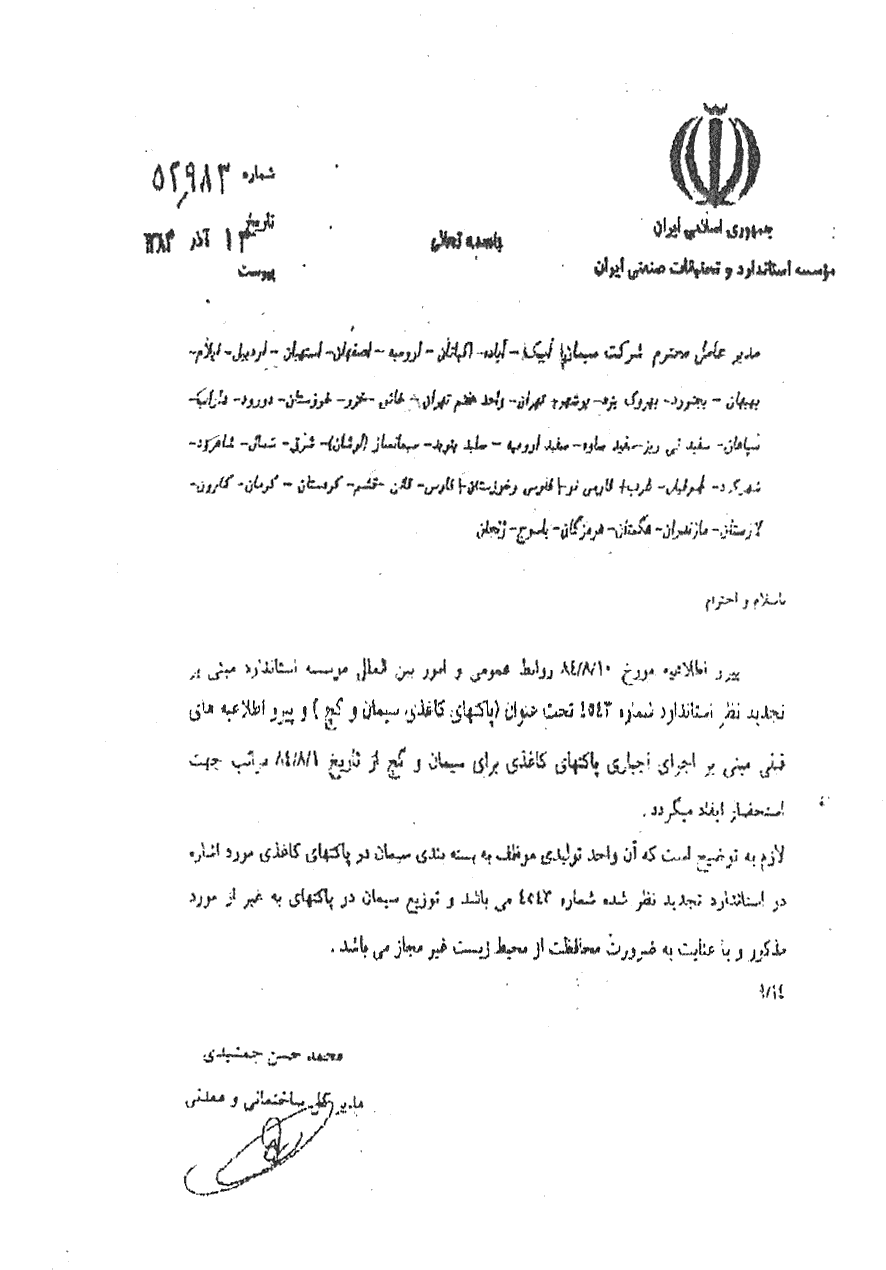 شماره ۵۲۹۸۳
تاریخ ۱۳ آذر
پیوست
باسمه تعالی
جمهوری اسلامی ایران
مؤسسه استاندارد و تحقیقات صنعتی ایران
مدیر عامل محترم شرکت سیمان آبیک - آباده - اکباتان - ارومیه - اصفهان - استهبان - اردبیل - ایلام -
بهبهان - بجنورد - بهروک یزد - بوشهر - تهران - واحد هفتم تهران - خاش - خزر - خوزستان - دورود - داراب -
سپاهان - سفید نی ریز - سفید ساوه - سفید ارومیه - سفید بنوید - سیمانساز (لوشان) - شرق - شمال - شاهرود -
شهرکرد - - غرب - فارس نو - فارس و خوزستان - فارس - قائن - قشم - کردستان - کرمان - کارون -
لارستان - مازندران - هگمتان - هرمزگان - یاسوج - زنجان
باسلام و احترام
پیرو اطلاعیه مورخ ۸۴/۸/۱۰ روابط عمومی و امور بین الملل موسسه استاندارد مبنی بر
تجدید نظر استاندارد شماره تحت عنوان (پاکتهای کاغذی سیمان و گچ) و پیرو اطلاعیه های
قبلی مبنی بر اجرای اجباری پاکتهای کاغذی برای سیمان و گچ از تاریخ ۸۴/۸/۱ مراتب جهت
استحضار ایفاد میگردد.
لازم به توضیح است که آن واحد تولیدی موظف به بسته بندی سیمان در پاکتهای کاغذی مورد اشاره
در استاندارد تجدید نظر شده شماره می باشد و توزیع سیمان در پاکتهای به غیر از مورد
مذکور و با عنایت به ضرورت محافظت از محیط زیست غیر مجاز می باشد.
۹/۱۴
محمد حسن جمشیدی
مدیر کل ساختمانی و معدنی